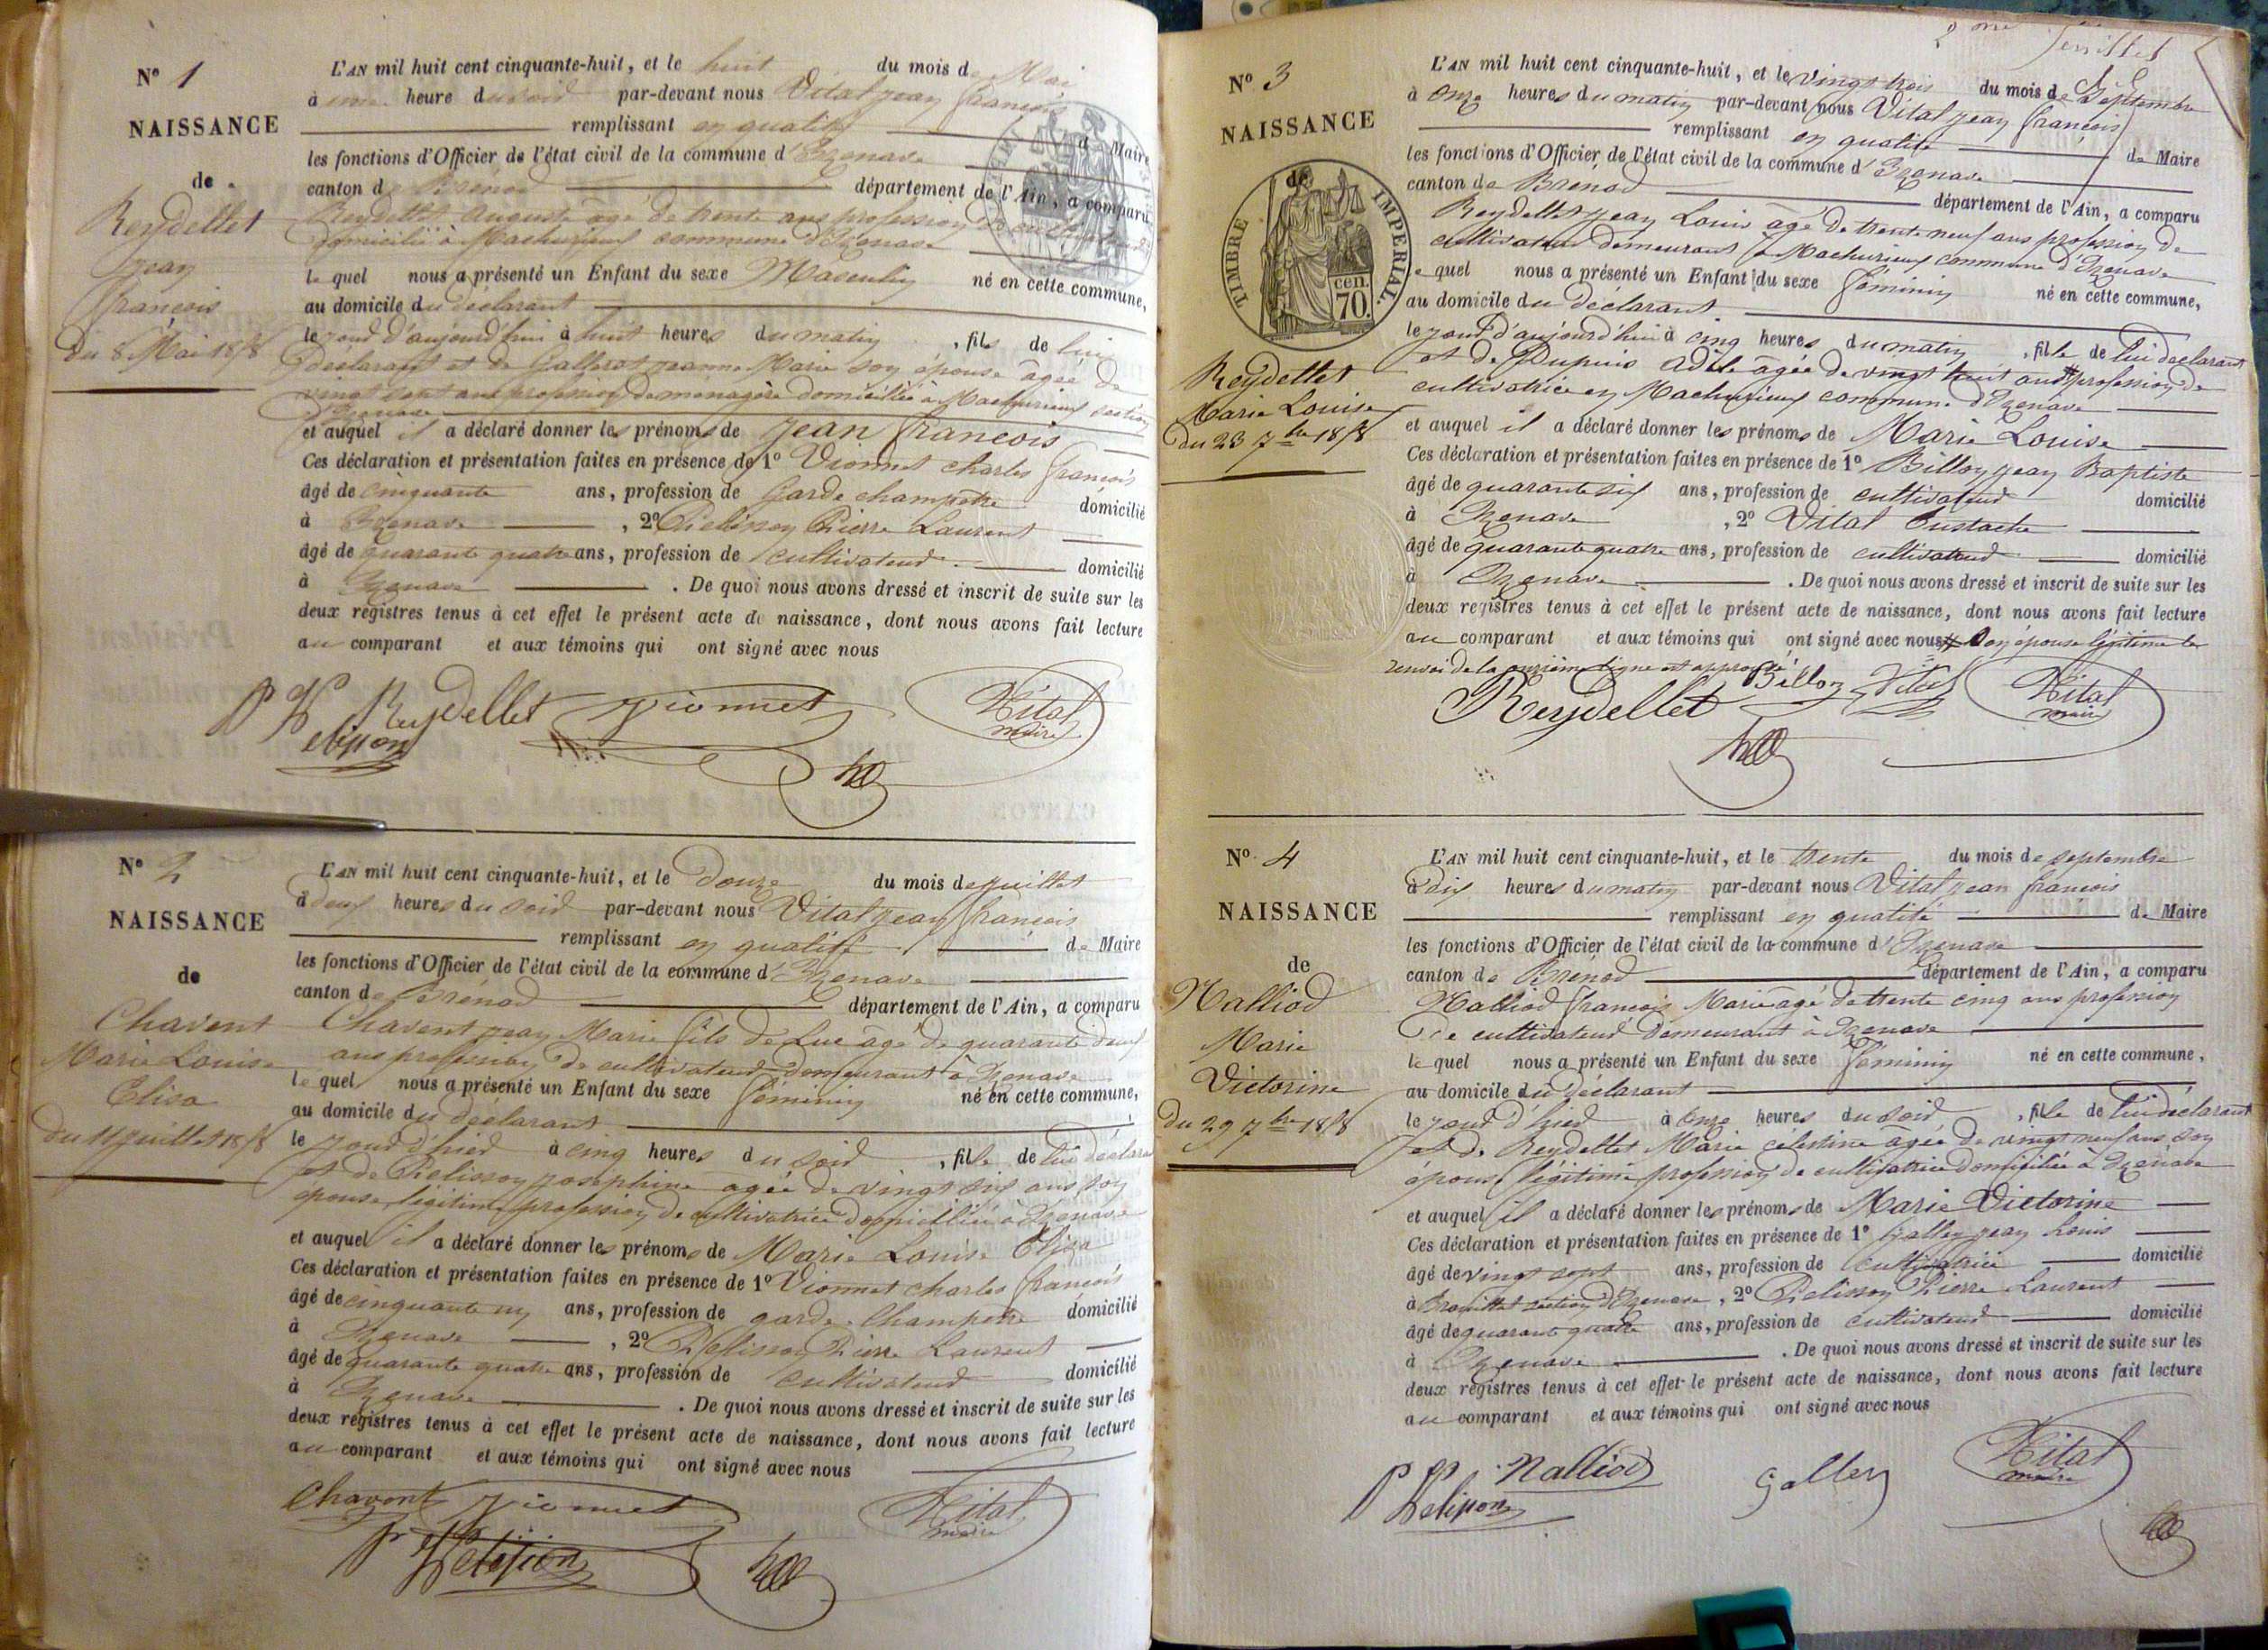 N° 1
NAISSANCE
de
Reydellet
Jean
françois
du 8 Mai 1858
L'AN mil huit cent cinquante-huit, et le huit du mois de Mai
à une heure du soir par-devant nous Vital jean françois
remplissant en qualité de Maire
les fonctions d'Officier de l'état civil de la commune d'Izenave
canton de Brénod département de l'Ain, a comparu
Reydellet auguste âgé de trente ans profession de cultivateur
domicilié à Machurieux commune d'Izenave
le quel nous a présenté un Enfant du sexe Masculin né en cette commune,
au domicile du déclarant
le jour d'aujourd'hui à huit heures du matin, fils de lui
déclarant et de jeanne Marie son épouse âgée de
vingt sept ans profession de ménagère domiciliée à Machurieux section
d'Izenave
et auquel il a déclaré donner les prénoms de Jean françois
Ces déclaration et présentation faites en présence de 1° Vionnet charles françois
âgé de cinquante ans, profession de Garde champetre domicilié
à Izenave, 2° Pelisson Pierre Laurent
âgé de quarante quatre ans, profession de cultivateur domicilié
à Izenave. De quoi nous avons dressé et inscrit de suite sur les
deux registres tenus à cet effet le présent acte de naissance, dont nous avons fait lecture
au comparant et aux témoins qui ont signé avec nous
P Pelisson Reydellet Vionnet Vital
maire
N° 2
NAISSANCE
de
Chavent
Marie Louise
Elisa
du 11 juillet 1858
L'AN mil huit cent cinquante-huit, et le douze du mois de juillet
à deux heures du soir par-devant nous Vital jean françois
remplissant en qualité de Maire
les fonctions d'Officier de l'état civil de la commune d'Izenave
canton de Brénod département de l'Ain, a comparu
Chavent jean Marie fils de Luc âgé de quarante deux
ans profession de cultivateur demeurant à Izenave
le quel nous a présenté un Enfant du sexe féminin né en cette commune,
au domicile du déclarant
le jour d'hier à cinq heures du soir, fille de lui déclarant
et de Pelisson josephine agée de vingt six ans son
épouse légitime profession de cultivatrice domiciliée à Izenave
et auquel il a déclaré donner les prénoms de Marie Louise Elisa
Ces déclaration et présentation faites en présence de 1° Vionnet charles françois
âgé de cinquante un ans, profession de garde champetre domicilié
à Izenave, 2° Pelisson Pierre Laurent
âgé de quarante quatre ans, profession de cultivateur domicilié
à Izenave. De quoi nous avons dressé et inscrit de suite sur les
deux registres tenus à cet effet le présent acte de naissance, dont nous avons fait lecture
au comparant et aux témoins qui ont signé avec nous
Chavent Vionnet Vital
maire
P Pelisson
2me feuillet
N° 3
NAISSANCE
de
TIMBRE IMPERIAL.
cen.
70.
Reydellet
Marie Louise
du 23 7bre 1858
L'AN mil huit cent cinquante-huit, et le vingt trois du mois de Septembre
à onze heures du matin par-devant nous Vital jean françois
remplissant en qualité de Maire
les fonctions d'Officier de l'état civil de la commune d'Izenave
canton de Brénod département de l'Ain, a comparu
Reydellet jean Louis âgé de trente neuf ans profession de
cultivateur demeurant à Machurieux commune d'Izenave
le quel nous a présenté un Enfant du sexe féminin né en cette commune,
au domicile du déclarant
le jour d'aujourd'hui à cinq heures du matin, fille de lui déclarant
et de Dupuis Adèle âgée de vingt huit ans # profession de
cultivatrice en Machurieux commune d'Izenave
et auquel il a déclaré donner les prénoms de Marie Louise
Ces déclaration et présentation faites en présence de 1° Billon jean Baptiste
âgé de quarante six ans, profession de cultivateur domicilié
à Izenave, 2° Vital Eustache
âgé de quarante quatre ans, profession de cultivateur domicilié
à Izenave. De quoi nous avons dressé et inscrit de suite sur les
deux registres tenus à cet effet le présent acte de naissance, dont nous avons fait lecture
au comparant et aux témoins qui ont signé avec nous # son épouse légitime le
renvoi de la onzième ligne est approuvé
Reydellet Billon Vital Vital
maire
N° 4
NAISSANCE
de
Nalliod
Marie
Victorine
du 29 7bre 1858
L'AN mil huit cent cinquante-huit, et le trente du mois de septembre
à dix heures du matin par-devant nous Vital jean françois
remplissant en qualité de Maire
les fonctions d'Officier de l'état civil de la commune d'Izenave
canton de Brénod département de l'Ain, a comparu
Nalliod françois Marie âgé de trente cinq ans profession
de cultivateur demeurant à Izenave
le quel nous a présenté un Enfant du sexe féminin né en cette commune,
au domicile du déclarant
le jour d'hier à onze heures du soir, fille de lui déclarant
et de Reydellet Marie célestine âgée de vingt neuf ans son
épouse légitime profession de cultivatrice domiciliée à Izenave
et auquel il a déclaré donner les prénoms de Marie Victorine
Ces déclaration et présentation faites en présence de 1° Galley jean Louis
âgé de vingt sept ans, profession de cultivatrice domicilié
à section d'Izenave, 2° Pelisson Pierre Laurent
âgé de quarante quatre ans, profession de cultivateur domicilié
à Izenave. De quoi nous avons dressé et inscrit de suite sur les
deux registres tenus à cet effet le présent acte de naissance, dont nous avons fait lecture
au comparant et aux témoins qui ont signé avec nous
P Pelisson Nalliod Galley Vital
maire